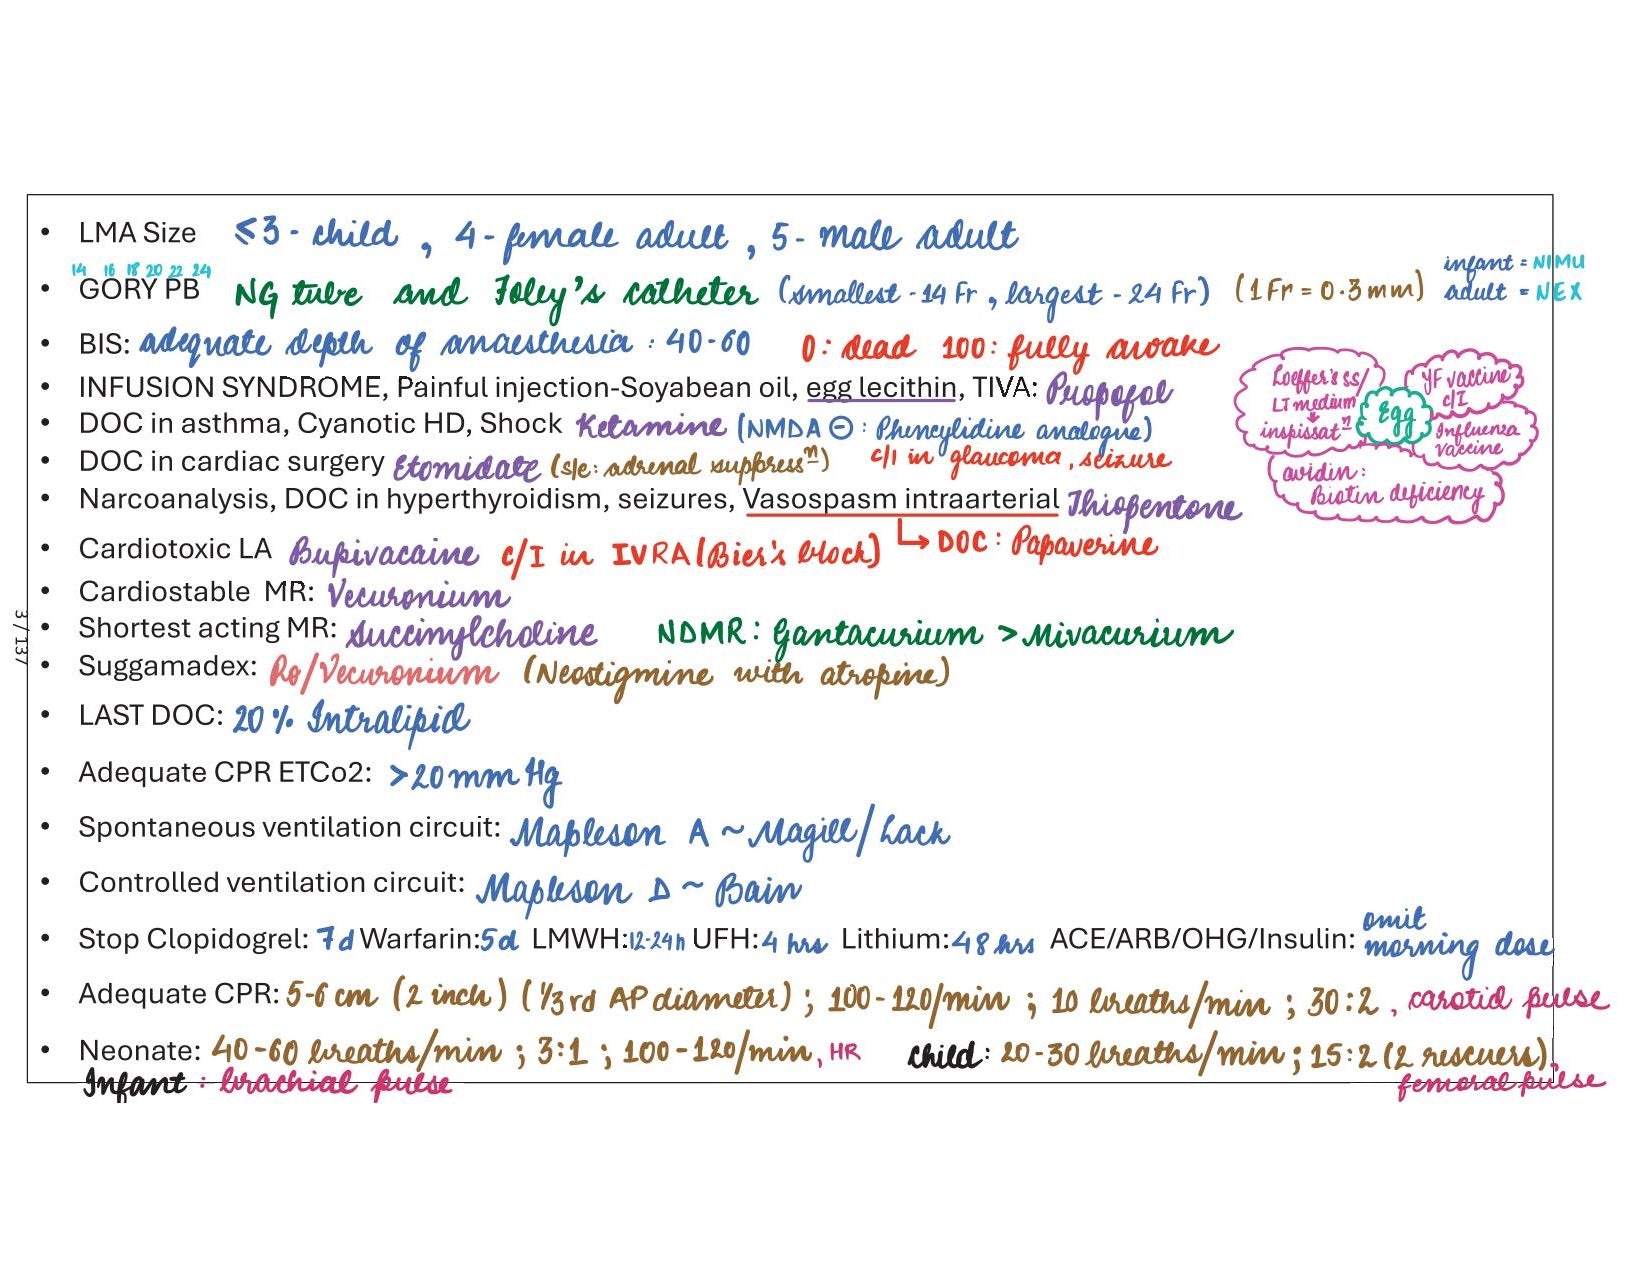 • LMA Size ≤3 - child , 4 - female adult , 5 - male adult
14 16 18 20 22 24
• GORY PB NG tube and Foley's catheter (smallest - 14 Fr , largest - 24 Fr) (1 Fr = 0.3 mm)
infant = NIMU
adult = NEX
• BIS: adequate depth of anaesthesia : 40-60 0: dead 100: fully awake
• INFUSION SYNDROME, Painful injection-Soyabean oil, egg lecithin, TIVA: Propofol
• DOC in asthma, Cyanotic HD, Shock Ketamine (NMDA ⊖ : Phencylidine analogue)
c/I in glaucoma , seizure
• DOC in cardiac surgery Etomidate (s/e: adrenal suppressⁿ)
• Narcoanalysis, DOC in hyperthyroidism, seizures, Vasospasm intraarterial Thiopentone
↳ DOC : Papaverine
Loeffer's ss/
LJ medium
↓
inspissatⁿ
Egg
YF vaccine
c/I
Influenza
vaccine
avidin :
Biotin deficiency
• Cardiotoxic LA Bupivacaine c/I in IVRA (Bier's block)
• Cardiostable MR: Vecuronium
• Shortest acting MR: Succinylcholine NDMR : Gantacurium > Mivacurium
• Suggamadex: Ro/Vecuronium (Neostigmine with atropine)
• LAST DOC: 20% Intralipid
• Adequate CPR ETCo2: >20 mm Hg
• Spontaneous ventilation circuit: Mapleson A ~ Magill/Lack
• Controlled ventilation circuit: Mapleson D ~ Bain
• Stop Clopidogrel: 7d Warfarin: 5d LMWH: 12-24h UFH: 4 hrs Lithium: 48 hrs ACE/ARB/OHG/Insulin: omit morning dose
• Adequate CPR: 5-6 cm (2 inch) (1/3rd AP diameter) ; 100-120/min ; 10 breaths/min ; 30:2 , carotid pulse
• Neonate: 40-60 breaths/min ; 3:1 ; 100-120/min, HR child : 20-30 breaths/min ; 15:2 (2 rescuers),
femoral pulse
Infant : brachial pulse
3 / 137